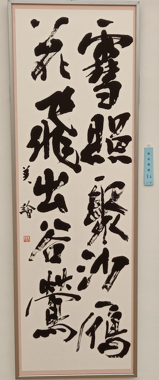 雪照聚沙雁
花飛出谷鶯